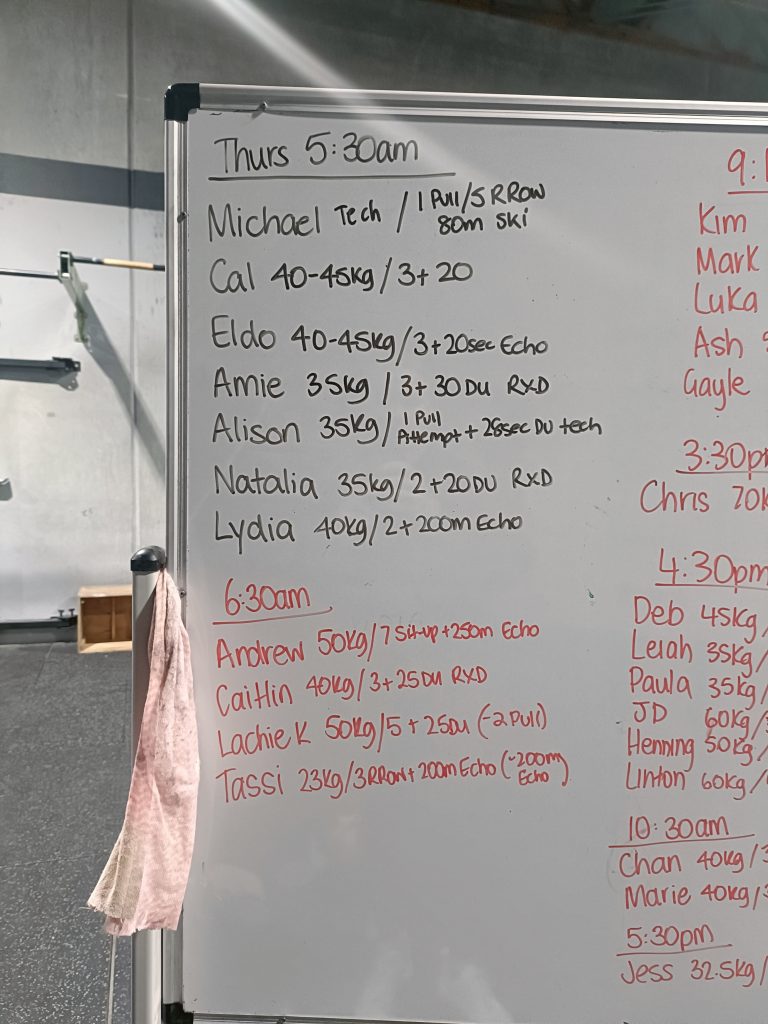 Thurs 5:30am
Michael Tech / 1 Pull/5 RRow
80m Ski
Cal 40-45kg/3+20
Eldo 40-45kg/3+20sec Echo
Amie 35kg / 3+30DU RXD
Alison 35kg/ 1 Pull
Attempt + 28sec DU tech
Natalia 35kg/2+20DU RXD
Lydia 40kg/2+200m Echo
6:30am
Andrew 50kg/7 Sit-up+250m Echo
Caitlin 40kg/3+25DU RXD
Lachie K 50kg/5+25DU (-2 Pull)
Tassi 23kg/3RRow+200m Echo (-200m
Echo)
9:
Kim
Mark
Luka
Ash
Gayle
3:30p
Chris 70k
4:30pm
Deb 45kg/
Leiah 35kg/
Paula 35kg/
JD 60kg/
Henning 50kg/
Linton 60kg/
10:30am
Chan 40kg/3
Marie 40kg/3
5:30pm
Jess 32.5kg/